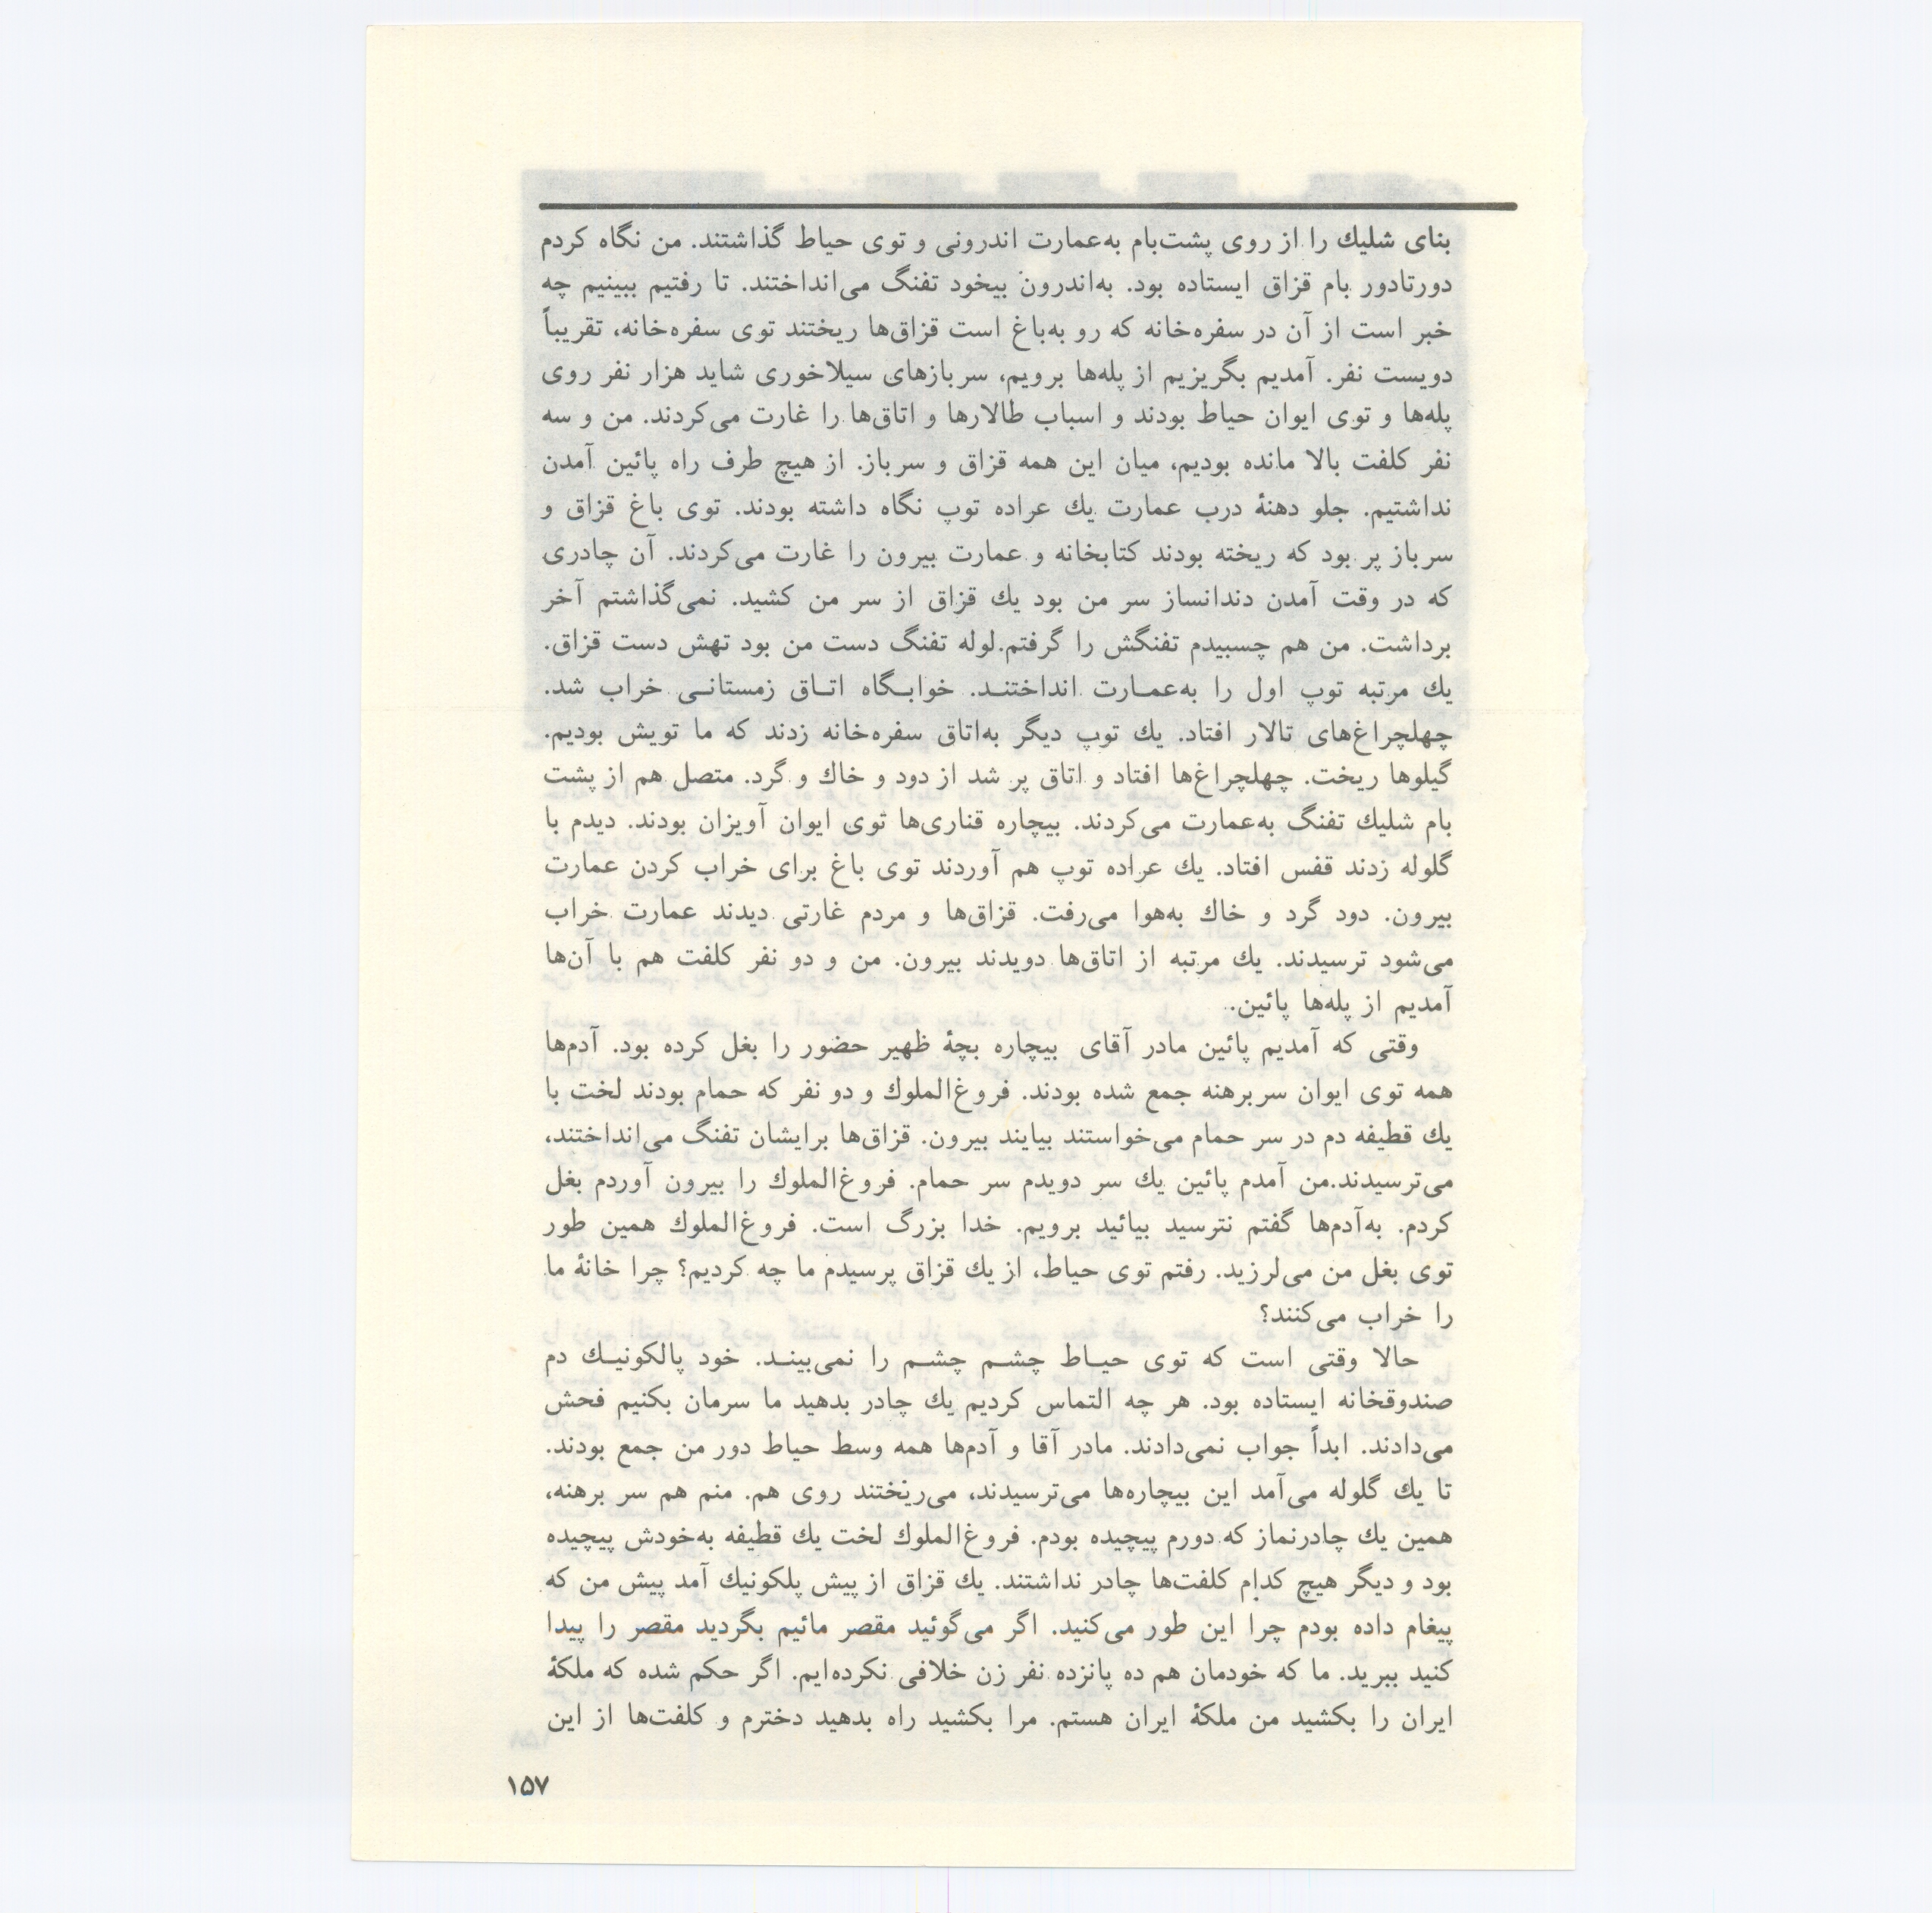 بنای شلیك را از روی پشت‌بام به‌عمارت اندرونی و توی حیاط گذاشتند. من نگاه کردم
دورتادور بام قزاق ایستاده بود. به‌اندرون بیخود تفنگ می‌انداختند. تا رفتیم ببینیم چه
خبر است از آن در سفره‌خانه که رو به‌باغ است قزاق‌ها ریختند توی سفره‌خانه، تقریباً
دویست نفر. آمدیم بگریزیم از پله‌ها برویم، سربازهای سیلاخوری شاید هزار نفر روی
پله‌ها و توی ایوان حیاط بودند و اسباب طالارها و اتاق‌ها را غارت می‌کردند. من و سه
نفر کلفت بالا مانده بودیم، میان این همه قزاق و سرباز. از هیچ طرف راه پائین آمدن
نداشتیم. جلو دهنهٔ درب عمارت یك عراده توپ نگاه داشته بودند. توی باغ قزاق و
سرباز پر بود که ریخته بودند کتابخانه و عمارت بیرون را غارت می‌کردند. آن چادری
که در وقت آمدن دندانساز سر من بود یك قزاق از سر من کشید. نمی‌گذاشتم آخر
برداشت. من هم چسبیدم تفنگش را گرفتم.لوله تفنگ دست من بود تهش دست قزاق.
یك مرتبه توپ اول را به‌عمـارت انداختنـد. خوابـگاه اتـاق زمستانـی خراب شد.
چهلچراغ‌های تالار افتاد. یك توپ دیگر به‌اتاق سفره‌خانه زدند که ما تویش بودیم.
گیلوها ریخت. چهلچراغ‌ها افتاد و اتاق پر شد از دود و خاك و گرد. متصل هم از پشت
بام شلیك تفنگ به‌عمارت می‌کردند. بیچاره قناری‌ها توی ایوان آویزان بودند. دیدم با
گلوله زدند قفس افتاد. یك عراده توپ هم آوردند توی باغ برای خراب کردن عمارت
بیرون. دود گرد و خاك به‌هوا می‌رفت. قزاق‌ها و مردم غارتی دیدند عمارت خراب
می‌شود ترسیدند. یك مرتبه از اتاق‌ها دویدند بیرون. من و دو نفر کلفت هم با آن‌ها
آمدیم از پله‌ها پائین.
وقتی که آمدیم پائین مادر آقای بیچاره بچهٔ ظهیر حضور را بغل کرده بود. آدم‌ها
همه توی ایوان سربرهنه جمع شده بودند. فروغ‌الملوك و دو نفر که حمام بودند لخت با
یك قطیفه دم در سر حمام می‌خواستند بیایند بیرون. قزاق‌ها برایشان تفنگ می‌انداختند،
می‌ترسیدند.من آمدم پائین یك سر دویدم سر حمام. فروغ‌الملوك را بیرون آوردم بغل
کردم. به‌آدم‌ها گفتم نترسید بیائید برویم. خدا بزرگ است. فروغ‌الملوك همین طور
توی بغل من می‌لرزید. رفتم توی حیاط، از یك قزاق پرسیدم ما چه کردیم؟ چرا خانهٔ ما
را خراب می‌کنند؟
حالا وقتی است که توی حیـاط چشـم چشـم را نمی‌بینـد. خود پالکونیـك دم
صندوقخانه ایستاده بود. هر چه التماس کردیم یك چادر بدهید ما سرمان بکنیم فحش
می‌دادند. ابداً جواب نمی‌دادند. مادر آقا و آدم‌ها همه وسط حیاط دور من جمع بودند.
تا یك گلوله می‌آمد این بیچاره‌ها می‌ترسیدند، می‌ریختند روی هم. منم هم سر برهنه،
همین یك چادرنماز که دورم پیچیده بودم. فروغ‌الملوك لخت یك قطیفه به‌خودش پیچیده
بود و دیگر هیچ کدام کلفت‌ها چادر نداشتند. یك قزاق از پیش پلکونیك آمد پیش من که
پیغام داده بودم چرا این طور می‌کنید. اگر می‌گوئید مقصر مائیم بگردید مقصر را پیدا
کنید ببرید. ما که خودمان هم ده پانزده نفر زن خلافی نکرده‌ایم. اگر حکم شده که ملکهٔ
ایران را بکشید من ملکهٔ ایران هستم. مرا بکشید راه بدهید دخترم و کلفت‌ها از این
۱۵۷